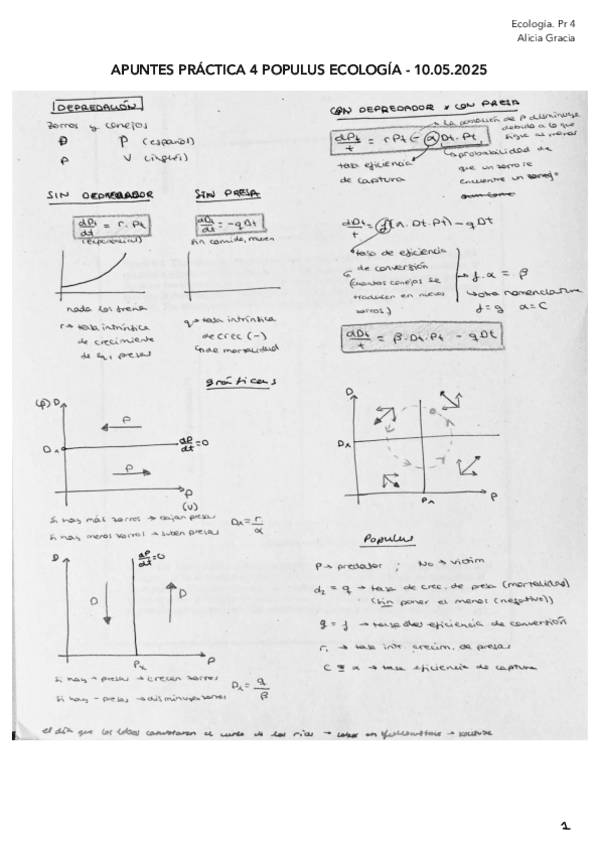 Ecología. Pr 4
Alicia Gracia
APUNTES PRÁCTICA 4 POPULUS ECOLOGÍA - 10.05.2025
DEPREDACIÓN
zorros y conejos
D P (español)
P V (inglés)
SIN DEPREDADOR
dPt/dt = r.Pt
(exponencial)
nada los frena
r → tasa intrínsica
de crecimiento
de las presas
SIN PRESA
dDt/dt = -qDt
sin comida, mueren
q → tasa intrínsica
de crec (-)
↳ de mortalidad
CON DEPREDADOR y CON PRESA
↳ La población de P disminuye
debido a lo que
dPt/t = rPt - αDt.Pt
tasa eficiencia
de captura
↳ probabilidad de
que un zorro se
encuentre un conejo
dDt/t = f(α.Dt.Pt) - qDt
tasa de eficiencia
↳ de conversión
(cuantos conejos se
traducen en nuevos
zorros)
f.α = β
↳ otra nomenclatura
f = g α = C
dDt/t = β.Dt.Pt - qDt
gráficas
(P) D
P
D* dP/dt = 0
P
P
(V)
Si hay más zorros → bajan presas
Si hay menos zorros → suben presas
D* = r/α
D
dP/dt = 0
D D
P* P
Si hay + presas → crecen zorros
Si hay - presas → disminuyen zorros
D* = q/β
D
D*
P* P
Populus
P → predator ; No → victim
d2 = q → tasa de crec. de presa (mortalidad)
(sin poner el menos (negativo))
g = f → tasa de eficiencia de conversión
r1 → tasa intr. crecim. de presas
C = α → tasa eficiencia de captura
el día que los lobos cambiaron el curso de los ríos → lobos en Yellowstone → youtube
1